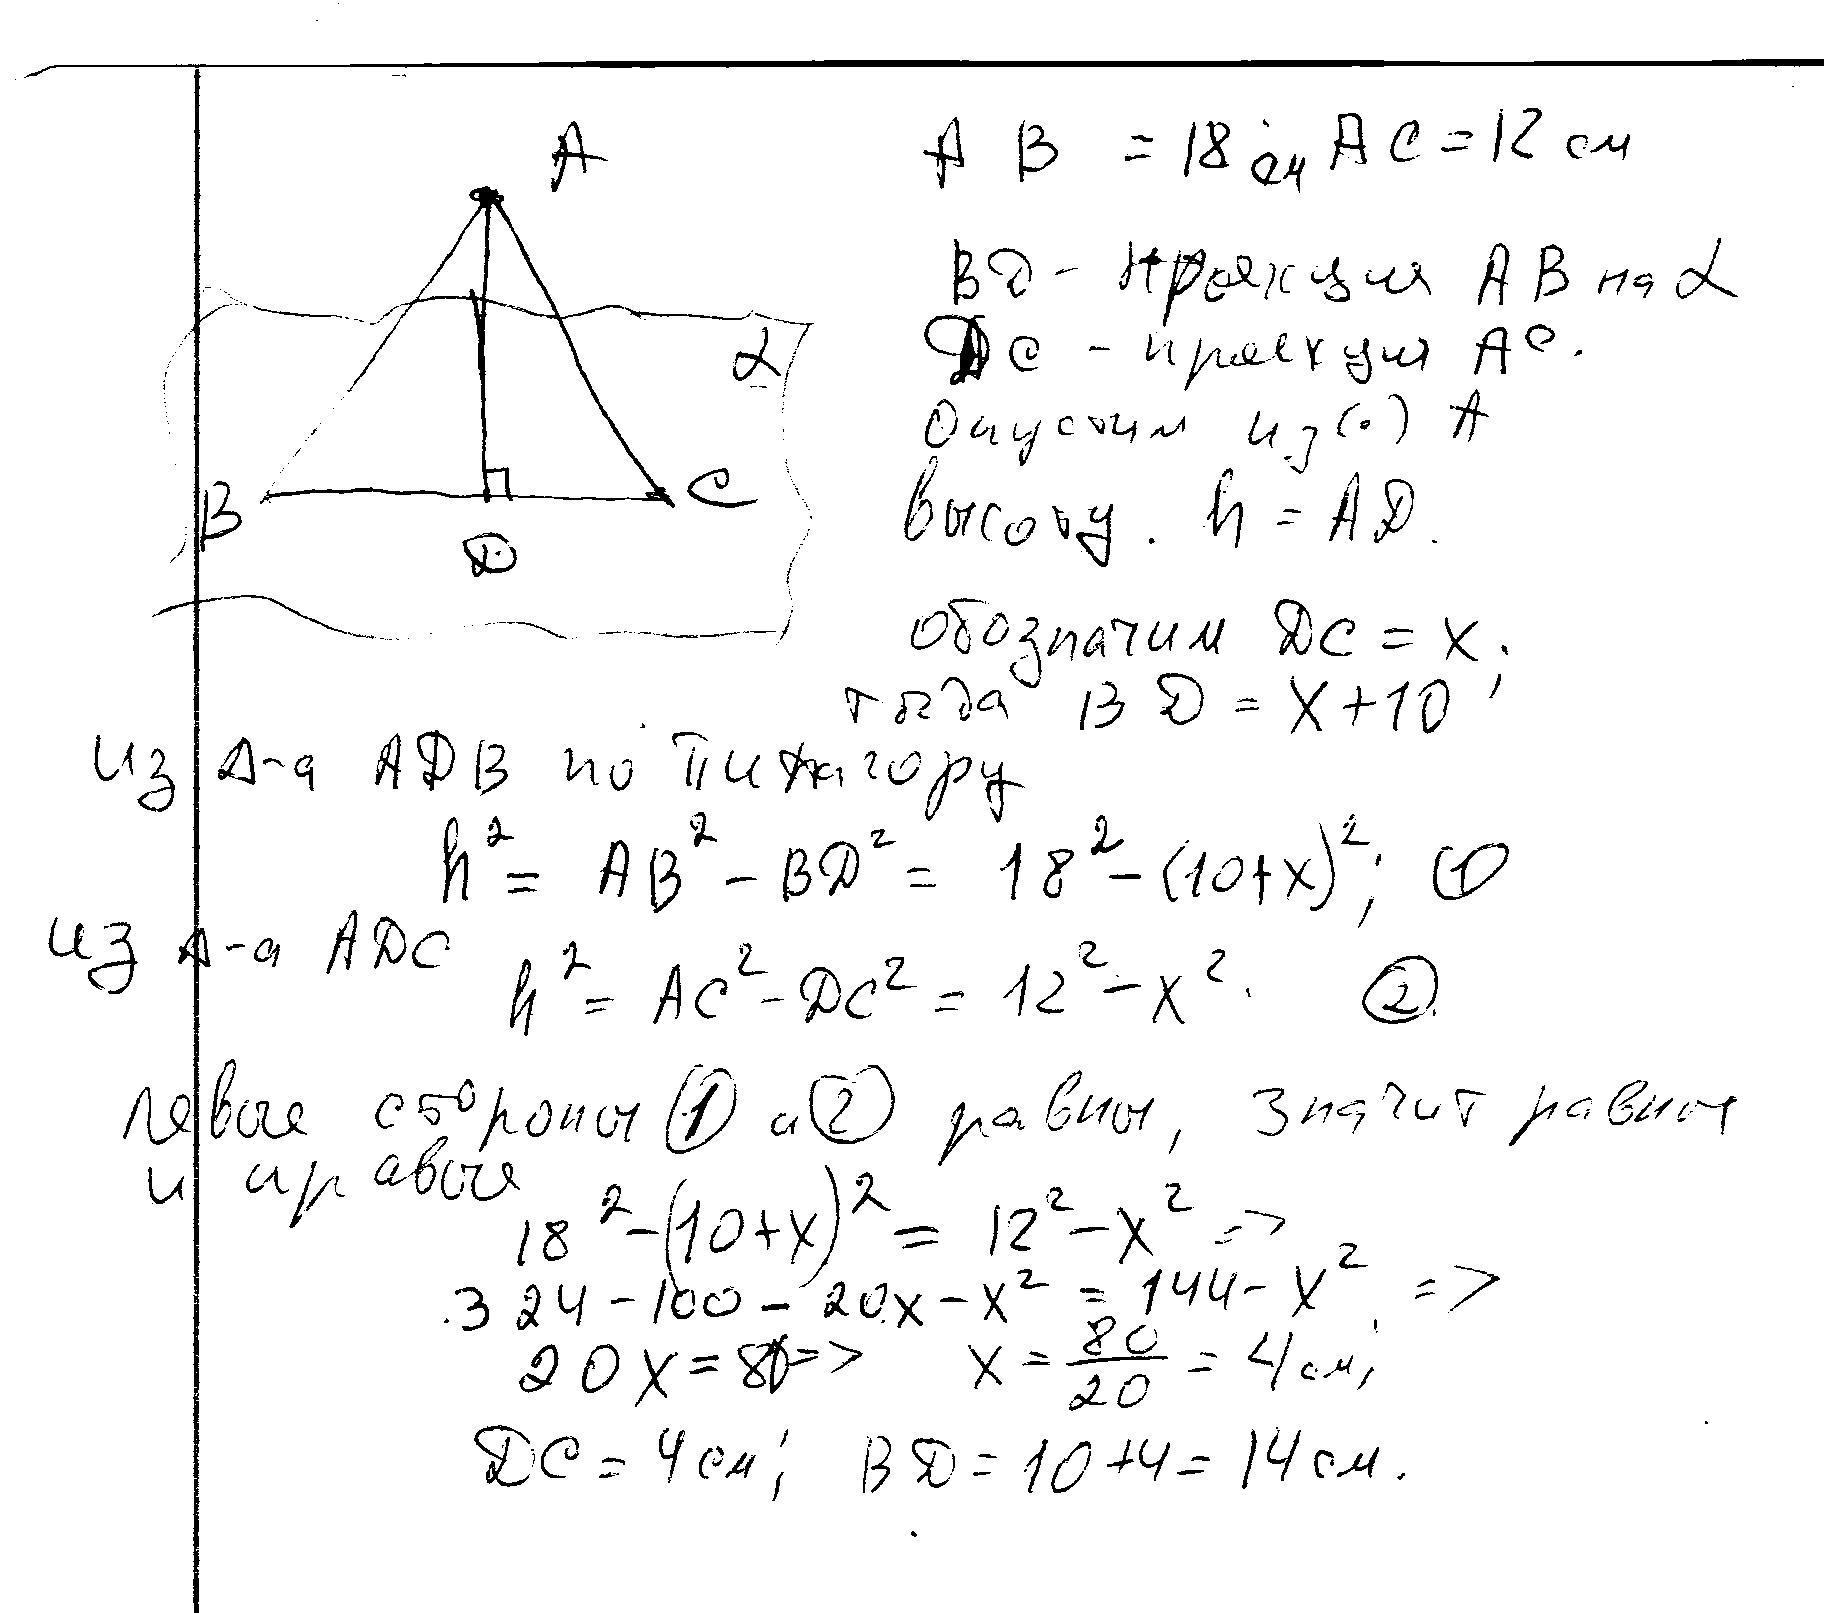 A
α
B
C
D
AB = 18 см AC = 12 см
BD - проекция AB на α
DC - проекция AC.
Опустим из (·) A
высоту. h = AD.
обозначим DC = x;
тогда BD = x + 10;
из Δ-а ADB по Пифагору
h² = AB² - BD² = 18² - (10+x)²; ①
из Δ-а ADC
h² = AC² - DC² = 12² - x². ②
левые стороны ① и ② равны, значит равны
и правые
18² - (10+x)² = 12² - x² =>
324 - 100 - 20x - x² = 144 - x² =>
20x = 80 => x = 80/20 = 4 см;
DC = 4 см; BD = 10 + 4 = 14 см.